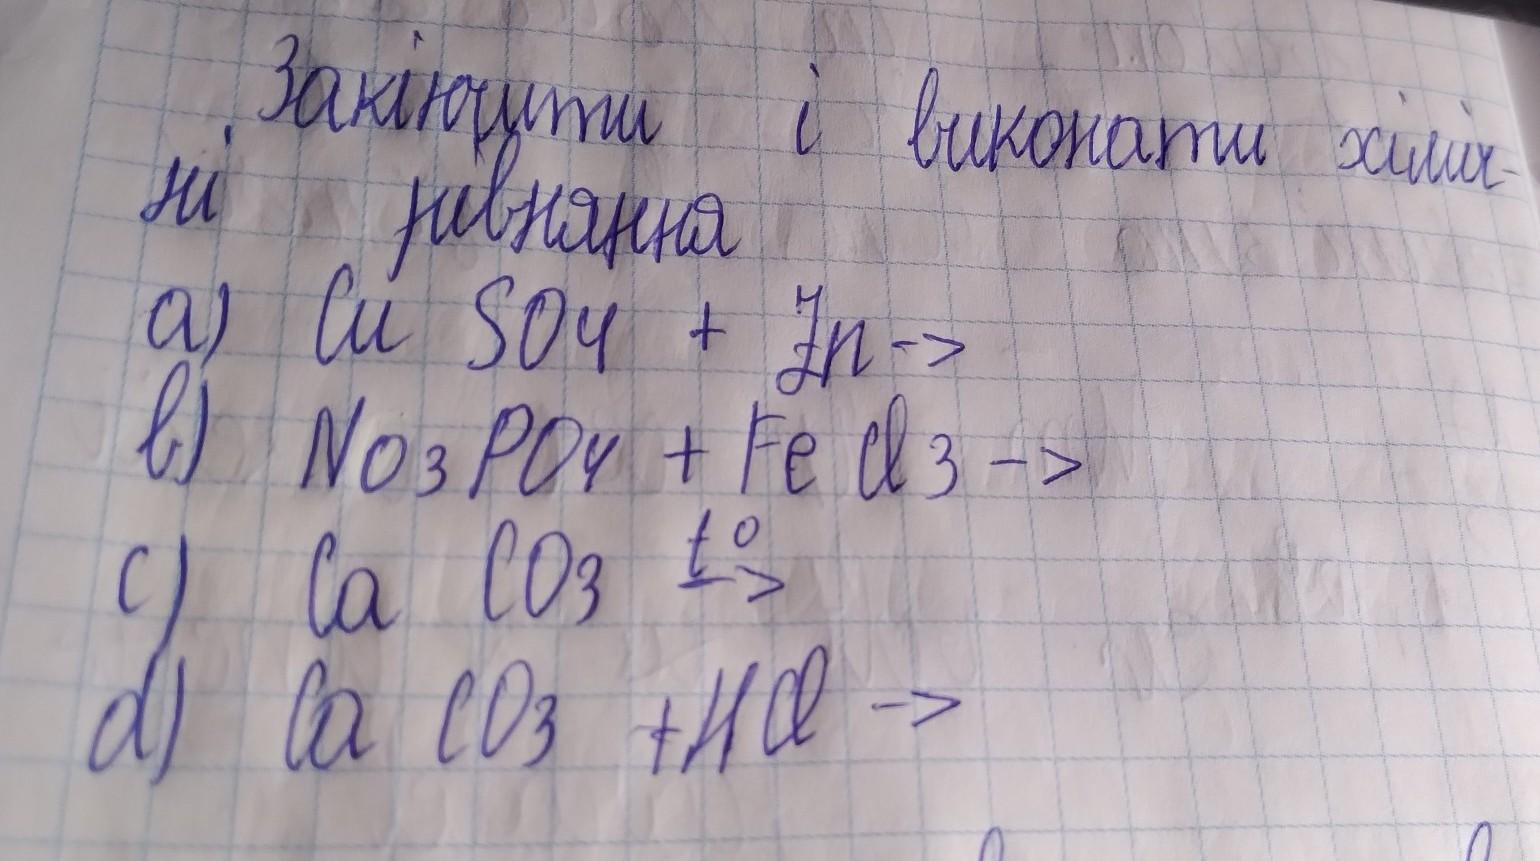 Закінчити і виконати хіміч-
ні рівняння
a) Cu SO4 + Zn ->
b) No3PO4 + Fe Cl3 ->
c) Ca CO3 t° ->
d) Ca CO3 + HCl ->